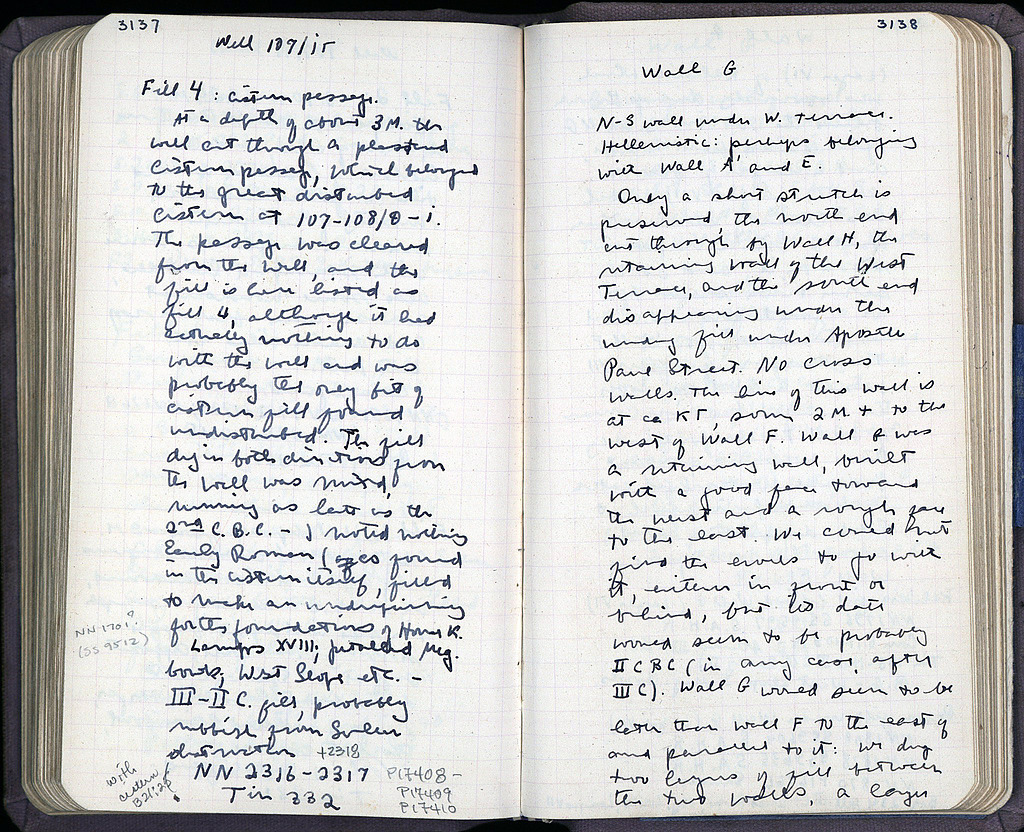 3137
Well 107/ΙΓ
Fill 4 : cistern passage.
At a depth of about 3 M. the
well cut through a plastered
cistern passage, which belonged
to the great disturbed
cistern at 107-108/Θ-Ι.
The passage was cleared
from the well, and the
fill is here listed as
fill 4, although it had
actually nothing to do
with the well and was
probably the only bit of
cistern fill found
undisturbed. The fill
dug in both directions from
the well was mixed,
running as late as the
2nd C. B.C. - I noted nothing
Early Roman (as found
in the cistern itself, filled
to make an underpinning
for the foundations of House K.
Lamps XVIII; moulded Meg.
bowls; West Slope etc. -
III-II C. fill, probably
rubbish from Sullan
destruction +2318
NN 2316-2317
Tin 332
P17408-
P17409
P17410
NN-1701?
(SS 9512)
with
cistern
3138
Wall G
N-S wall under W. Terrace.
Hellenistic: perhaps belonging
with Wall A' and E.
Only a short stretch is
preserved, the north end
cut through by Wall H, the
retaining wall of the West
Terrace, and the south end
disappearing under the
undug fill under Apostle
Paul Street. No cross
walls. The line of this wall is
at ca ΚΓ, some 2 M + to the
west of Wall F. Wall G was
a retaining wall, built
with a good face toward
the west and a rough face
to the east. We could not
find the levels to go with
it, either in front or
behind, but its date
would seem to be probably
II C BC (in any case after
III C). Wall G would seem to be
later than Wall F to the east of
and parallel to it: we dug
two layers of fill between
the two walls, a layer